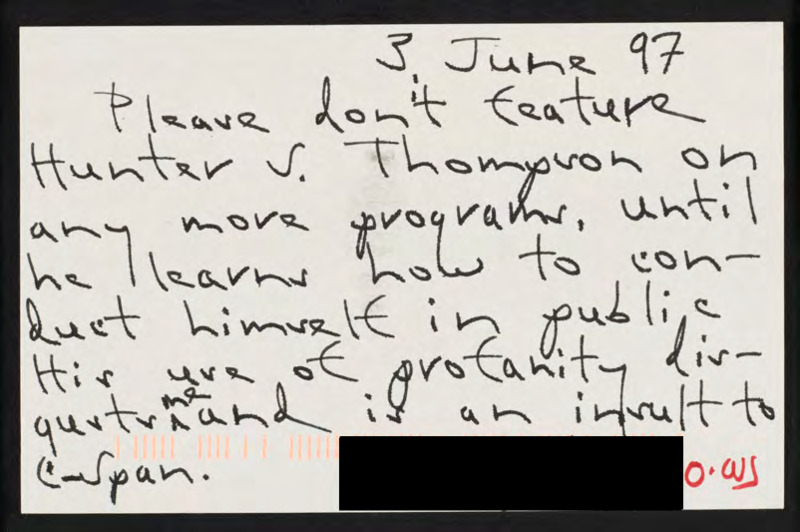 3 June 97
Please don't feature
Hunter S. Thompson on
any more programs, until
he learns how to con-
duct himself in public
His use of profanity dis-
gusts me and is an insult to
C-Span.